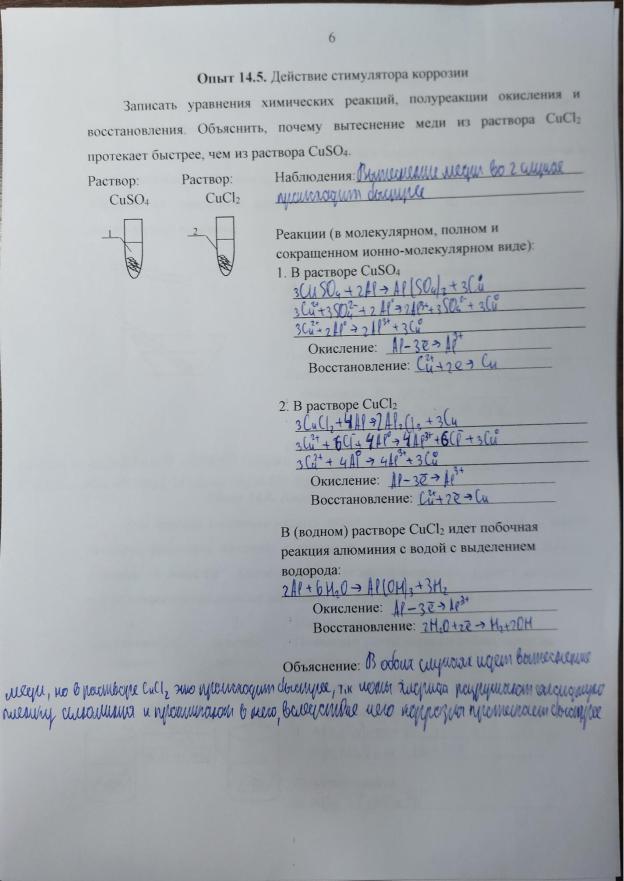 6
Опыт 14.5. Действие стимулятора коррозии
Записать уравнения химических реакций, полуреакции окисления и
восстановления. Объяснить, почему вытеснение меди из раствора CuCl₂
протекает быстрее, чем из раствора CuSO₄.
Раствор:
CuSO₄
Раствор:
CuCl₂
1
2
Наблюдения: Вытеснение меди во 2 случае
происходит быстрее
Реакции (в молекулярном, полном и
сокращенном ионно-молекулярном виде):
1. В растворе CuSO₄
3CuSO₄ + 2Al → Al(SO₄)₃ + 3Cu
3Cu²⁺ + 3SO₄²⁻ + 2Al⁰ → 2Al³⁺ + 3SO₄²⁻ + 3Cu⁰
3Cu²⁺ + 2Al⁰ → 2Al³⁺ + 3Cu⁰
Окисление: Al – 3ē → Al³⁺
Восстановление: Cu²⁺ + 2ē → Cu
2. В растворе CuCl₂
3CuCl₂ + 4Al → 2Al₂Cl₃ + 3Cu
3Cu²⁺ + 6Cl⁻ + 4Al⁰ → 4Al³⁺ + 6Cl⁻ + 3Cu⁰
3Cu²⁺ + 4Al⁰ → 4Al³⁺ + 3Cu⁰
Окисление: Al – 3ē → Al³⁺
Восстановление: Cu²⁺ + 2ē → Cu
В (водном) растворе CuCl₂ идет побочная
реакция алюминия с водой с выделением
водорода:
2Al + 6H₂O → Al(OH)₃ + 3H₂
Окисление: Al – 3ē → Al³⁺
Восстановление: 2H₂O + 2ē → H₂ + 2OH
Объяснение: В обоих случаях идет вытеснение
меди, но в растворе CuCl₂ это происходит быстрее, т.к ионы хлорида разрушают оксидную
пленку алюминия и проникают в него, вследствие чего коррозия протекает быстрее